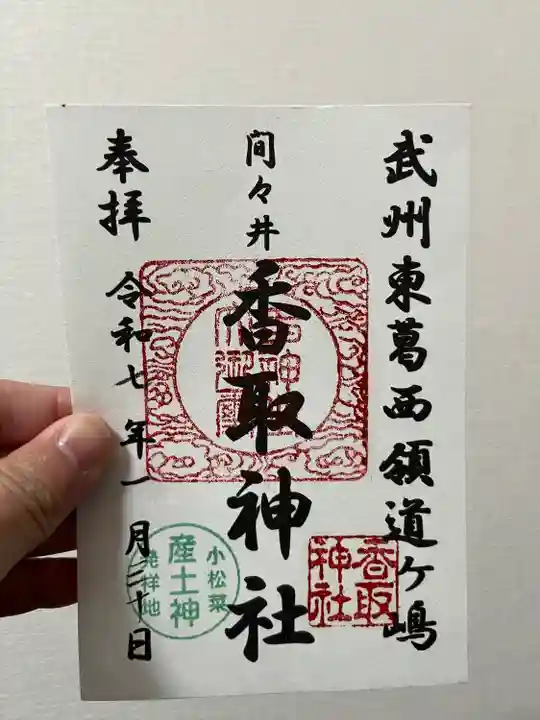 武州東葛西領道ヶ嶋
間々井
香取神社
奉拝
令和七年一月三十日
香取
神社
小松菜
産土神
発祥地